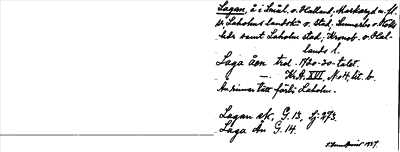 Lagan, å i Smål. o. Halland, Markaryd m. fl.
s:r, Laholms landsks o. stad; Sunnerbo o. Höks
hdr samt Laholm stad; Kronob. o. Hal-
lands l.
Laga åen trol. 1720-30-talet.
— KrA XVI, No 4, lit. b.
An rinner tätt förbi Laholm.
Lagan sk, G. 13, lj 273.
Laga Ån G. 14.
1937.